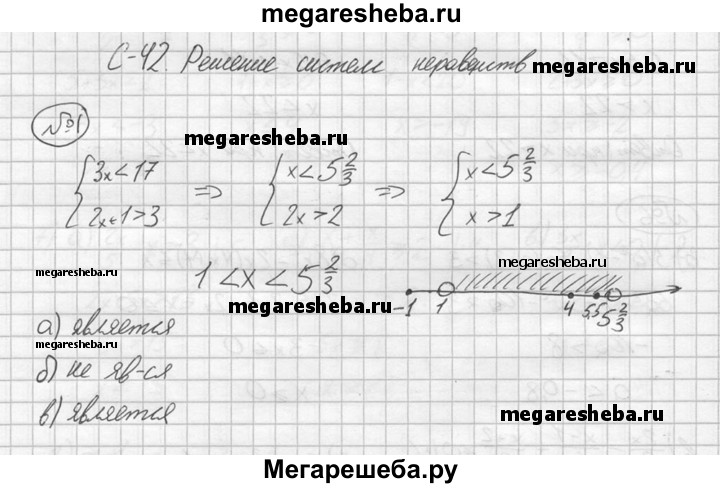 megaresheba.ru
С-42. Решение систем неравенств
megaresheba.ru
№1
megaresheba.ru
{3x<17 ⇒ {x<5 2/3 ⇒ {x<5 2/3
{2x+1>3 {2x>2 {x>1
megaresheba.ru
megaresheba.ru
1<x<5 2/3
megaresheba.ru
-1 1 4 5,5 5 2/3
а) является
megaresheba.ru
б) не яв-ся
в) является
megaresheba.ru
Мегарешеба.ру